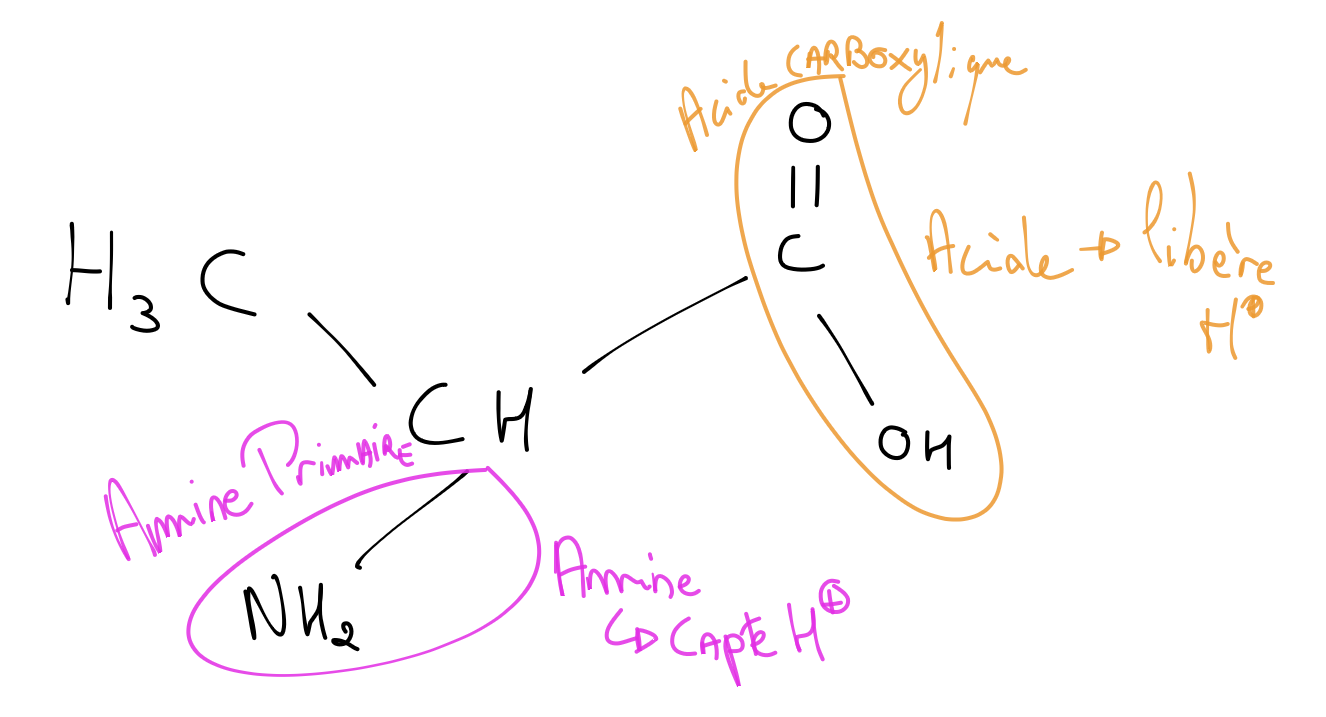 Acide CARBoxylique
O
||
C
Acide → libère
H⊕
H3C
CH
OH
Amine PrimAIRE
NH2
Amine
↳ CAPte H⊕